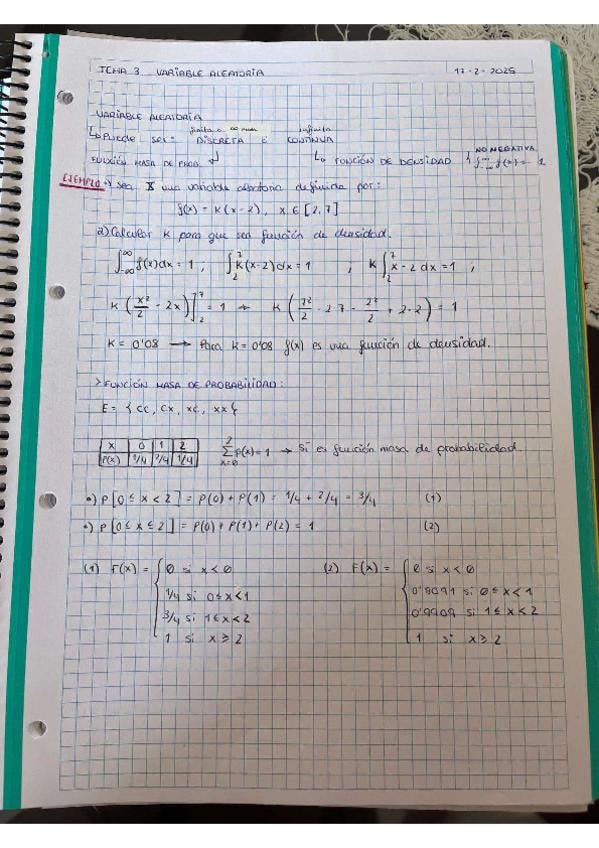 TEMA 3. VARIABLE ALEATORIA 17-2-2025
VARIABLE ALEATORIA
finita o ∞ num infinita
↳ Puede ser: DISCRETA o CONTINUA
NO NEGATIVA
FUNCIÓN MASA DE PROB. ↲ ↳ FUNCIÓN DE DENSIDAD { ∫_{-∞}^{∞} f(x) = 1
EJEMPLO •) Sea X una variable aleatoria definida por:
f(x) = K(x-2), x ∈ [2,7]
a) Calcular K para que sea función de densidad.
∫_{-∞}^{∞} f(x)dx = 1 ; ∫_2^7 K(x-2)dx = 1 ; K ∫_2^7 x-2 dx = 1 ;
K (x²/2 - 2x)]_2^7 = 1 → K (7²/2 - 2·7 - 2²/2 + 2·2) = 1
K = 0'08 → Para K = 0'08 f(x) es una función de densidad.
> FUNCIÓN MASA DE PROBABILIDAD:
E = { CC, CX, XC, XX {
X 0 1 2
P(X) 1/4 2/4 1/4
∑_{x=0}^{2} P(x) = 1 → Sí es función masa de probabilidad.
•) P[0 ≤ x < 2] = P(0) + P(1) = 1/4 + 2/4 = 3/4 (1)
•) P[0 ≤ x ≤ 2] = P(0) + P(1) + P(2) = 1 (2)
(1) F(x) = { 0 si x < 0 (2) F(x) = { 0 si x < 0
1/4 si 0 ≤ x < 1 0'8091 si 0 ≤ x < 1
3/4 si 1 ≤ x < 2 0'9909 si 1 ≤ x < 2
1 si x ≥ 2 1 si x ≥ 2